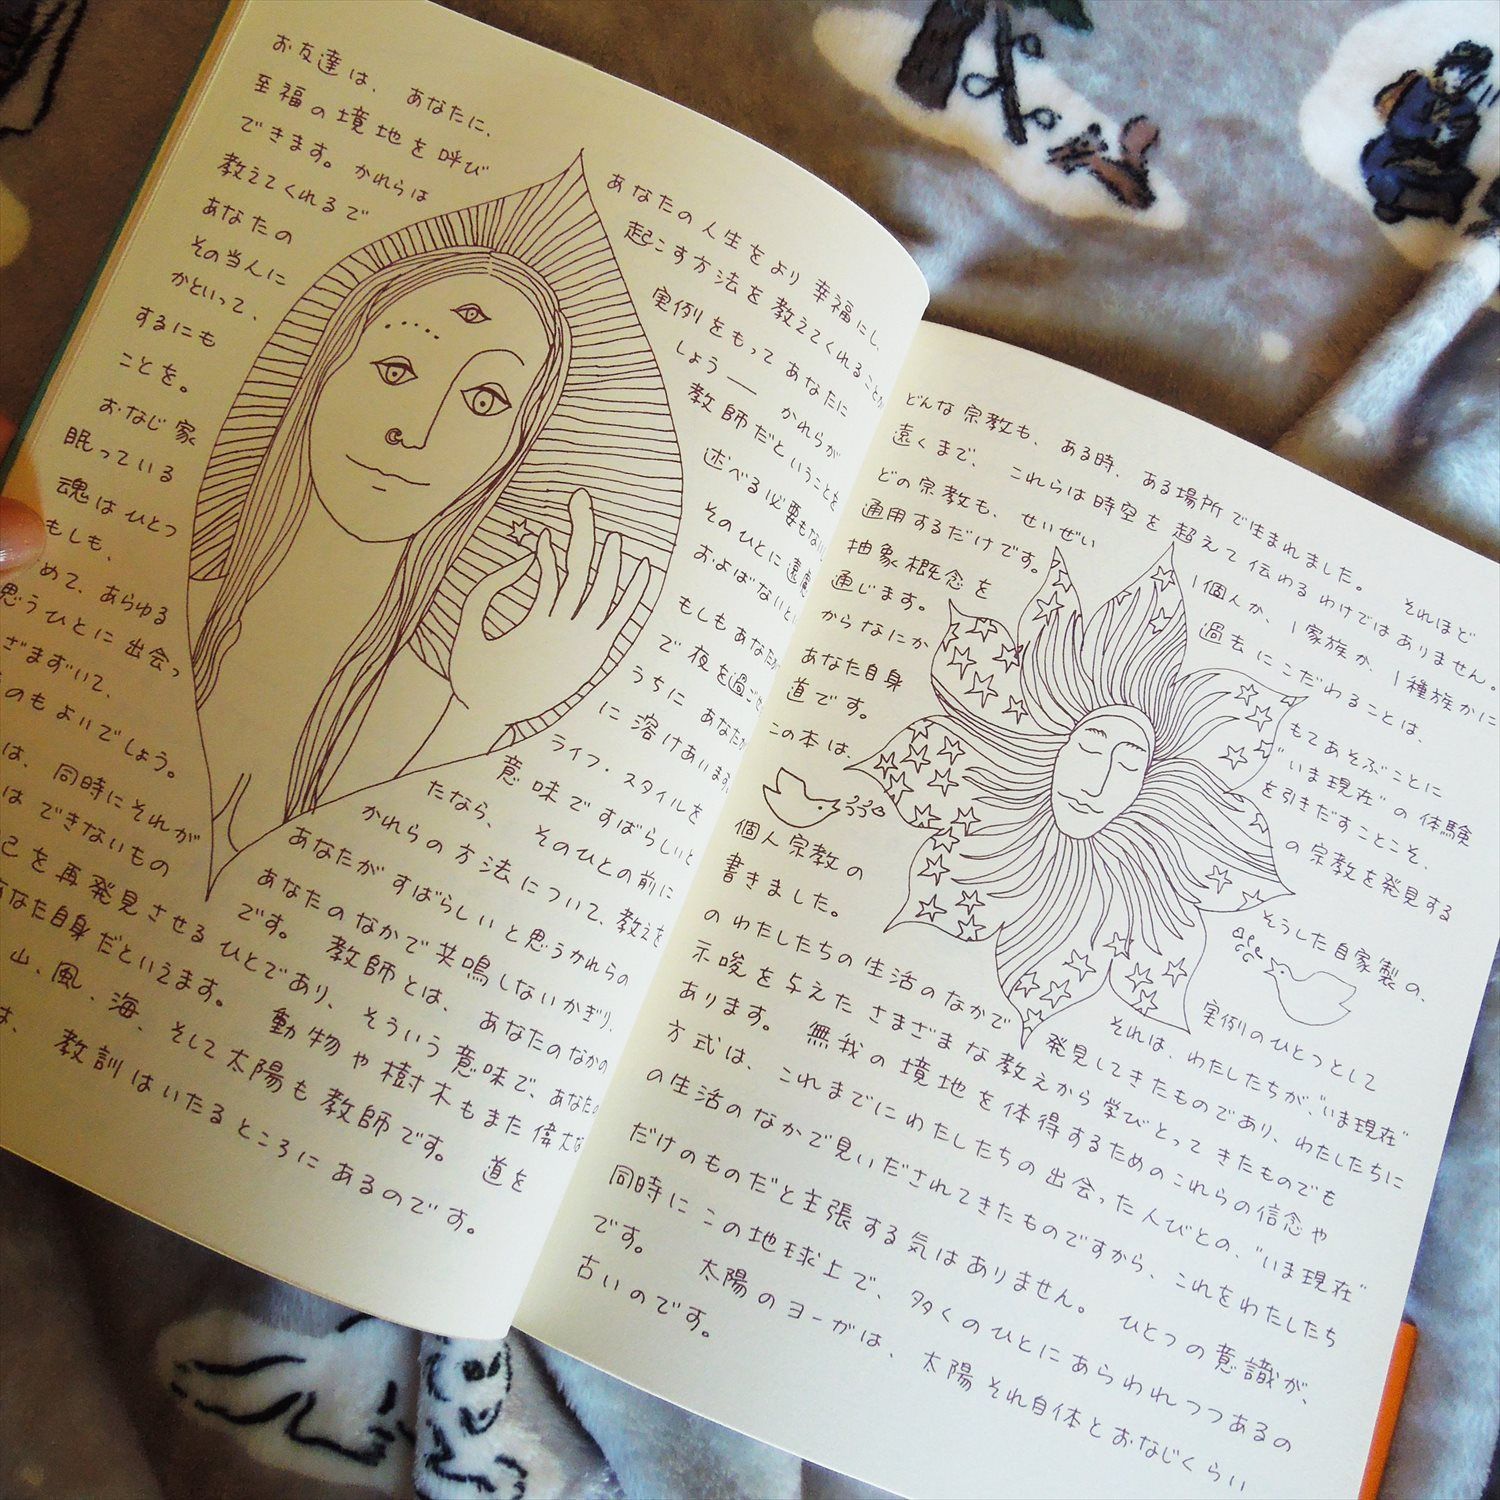 お友達は、 あなたに、 あなたの人生をより幸福にし、
至福の境地を呼び 起こす方法を教えてくれることが
できます。 かれらは 実例をもってあなたに
教えてくれるで しょう── かれらが
あなたの 教師だということを
その当人に 述べる必要もない
かといって、 そのひとに遠慮
するにも およばないという
ことを。 もしもあなたが
おなじ家 で夜を過ごせ
眠っている うちに あなたが
魂はひとつ に溶けあいます
もしも、 ライフ・スタイルを
めて、あらゆる 意味ですばらしいと
思うひとに出会っ たなら、 そのひとの前に
ざまずいて、 かれらの方法について、教えを
のもよいでしょう。 あなたがすばらしいと思うかれらの
は、同時にそれが あなたのなかで共鳴しないかぎり、
は できないもの です。 教師とは、あなたのなかの
己を再発見させるひとであり、そういう意味で、あなたの
あなた自身だといえます。 動物や樹木もまた偉大な
山、風、海、そして太陽も教師です。 道を
は、 教訓はいたるところにあるのです。
どんな宗教も、ある時、ある場所で生まれました。 それほど
遠くまで、これらは時空を超えて伝わるわけではありません。
どの宗教も、せいぜい 1個人か、1家族か、1種族かに
通用するだけです。 過去にこだわることは、
抽象概念を もてあそぶことに
通じます。 "いま現在"の体験
からなにか を引きだすことこそ、
あなた自身 の宗教を発見する
道です。
この本は、 そうした自家製の、
個人宗教の 実例のひとつとして
書きました。 それは、わたしたちが、"いま現在"
のわたしたちの生活のなかで 発見してきたものであり、わたしたちに
示唆を与えたさまざまな教えから学びとってきたものでも
あります。 無我の境地を体得するためのこれらの信念や
方式は、これまでにわたしたちの出会った人びとの、"いま現在"
の生活のなかで見いだされてきたものですから、これをわたしたち
だけのものだと主張する気はありません。 ひとつの意識が、
同時にこの地球上で、多くのひとにあらわれつつあるの
です。 太陽のヨーガは、太陽それ自体とおなじくらい
古いのです。